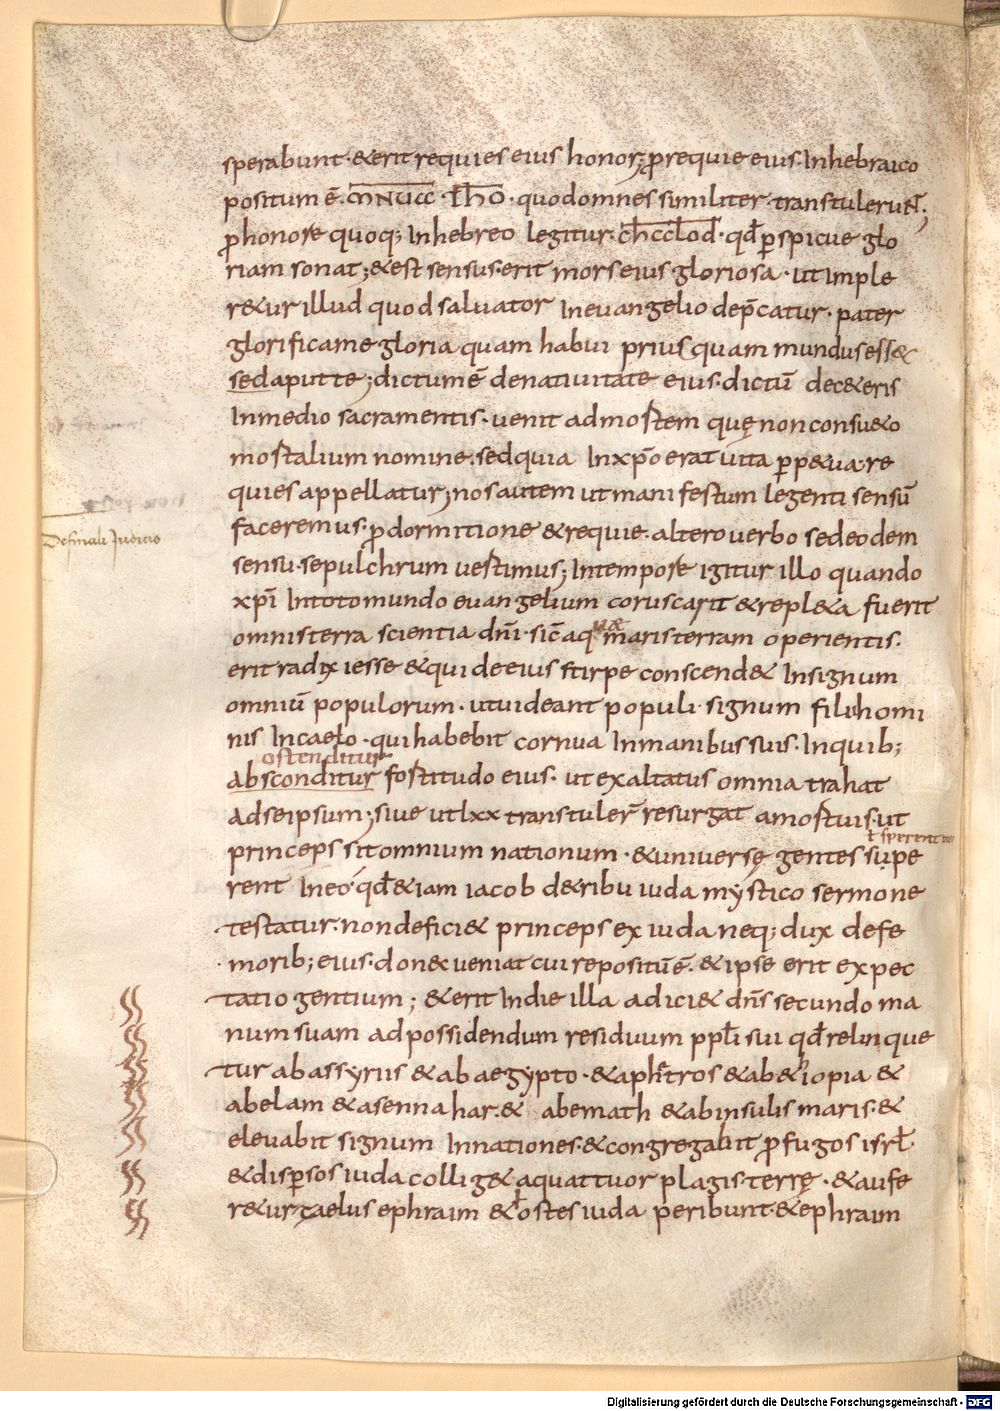 sperabunt·&erit requies eius honor; ꝓrequie eius. Inhebraico
positum ē. · quodomnes similiter transtuleruɴt;
ꝓhonore quoq; Inhebreo legitur· · qd̄ ꝑspicue glo
riam sonat; &est sensus· erit mors eius gloriosa · ut imple
r&ur illud quod saluator Ineuangelio dep̄catur· pater
glorificame gloria quam habui prius quam mundus ess&
sed aput te; dictum ē denatiuitate eius. dictū dec&eris
Inmedio sacramentis· uenit admortem quę nonconsu&o
mortalium nomine. sedquia Inxp̄o erat uita ꝑp&ua· re
quies appellatur; nos autem ut manifestum legenti sensū
faceremus· ꝓdormitione &requie· altero uerbo sedeodem
sensu· sepulchrum uertimus; Intempore igitur illo quando
xp̄i Intoto mundo euangelium coruscarit &repl&a fuerit
omnis terra scientia dn̄i· sic̄ aq maris terram operientis.
De finali Judicio
erit radix iesse &qui de eius stirpe conscend& Insignum
omniū populorum· utuideant populi signum filii homi
nis Incaelo· qui habebit cornua Inmanibus suis. Inquib;
ostenditur
absconditur fortitudo eius· ut exaltatus omnia trahat
adseipsum; siue ut lxx transtuler̄ resurgat amortuis· ut
ł sperent
princeps sit omnium nationum · &uniuersę gentes supe
rent Ineo· qd̄ &iam iacob d&ribu iuda mystico sermone
testatur· nondefici& princeps ex iuda neq; dux defe
morib; eius· don& ueniat cui repositū ē. &ipse erit expec
tatio gentium; &erit Indie illa adici& dn̄s secundo ma
num suam adpossidendum residuum ppli sui qd̄ relinque
tur ab assyriis &ab aegypto· &aph&tros &ab&hiopia &
abelam &asennahar· & abemath &abinsulis maris· &
eleuabit signum Innationes· &congregabit ꝓfugos isrł·
&disꝑsos iuda collig& aquattuor plagis terrę · &aufe
r&ur zaelus ephraim &hostes iuda peribunt· &ephraim
Digitalisierung gefördert durch die Deutsche Forschungsgemeinschaft - DFG